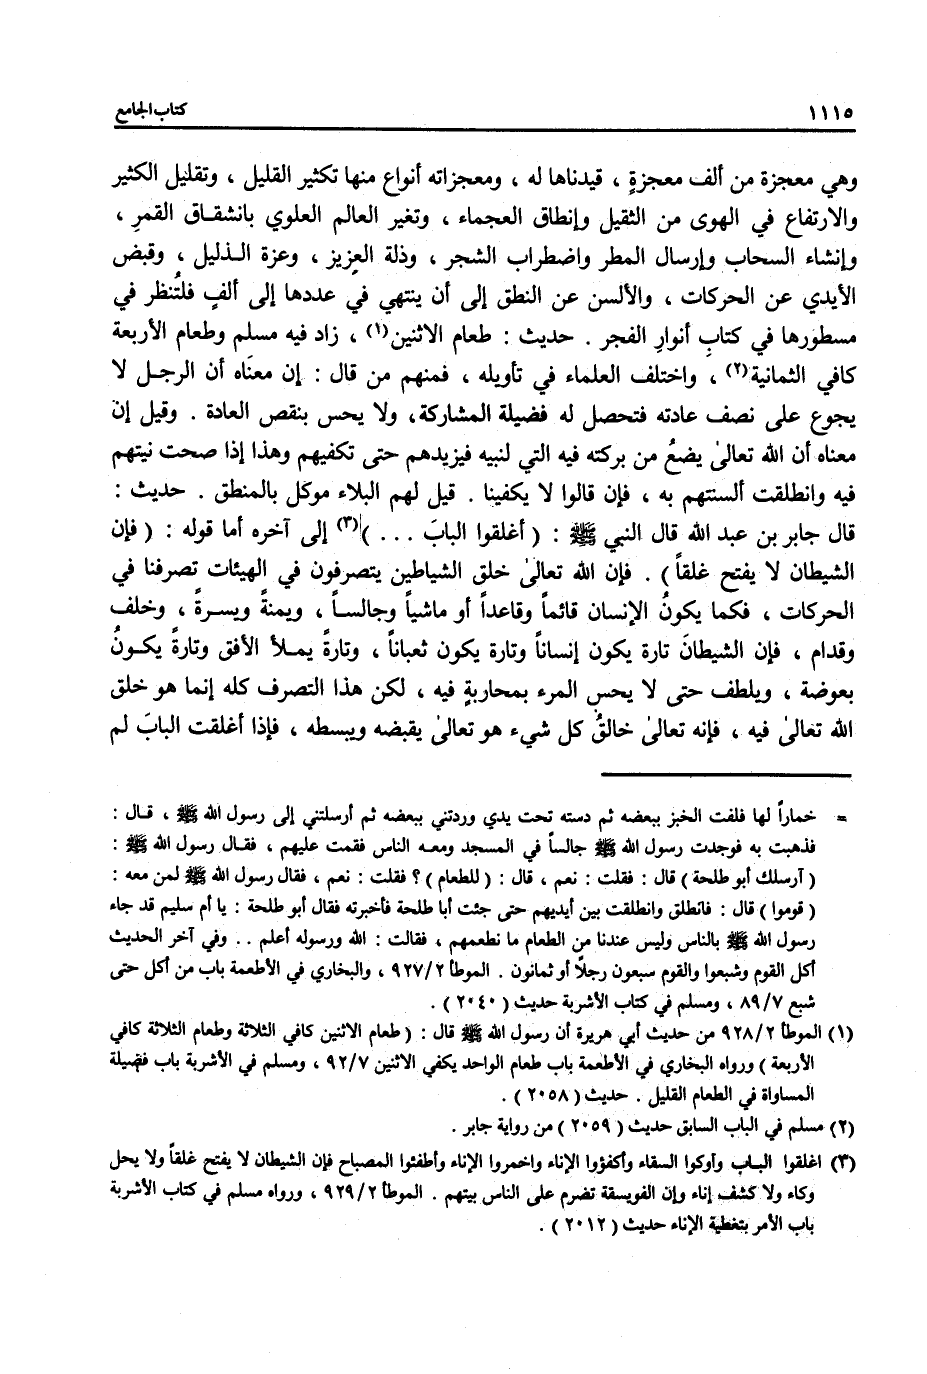 ١١١٥ كتاب الجامع
وهي معجزة من ألف معجزةٍ ، قيدناها له ، ومعجزاته أنواع منها تكثير القليل ، وتقليل الكثير
والارتفاع في الهوى من الثقيل وإنطاق العجماء ، وتغير العالم العلوي بانشقاق القمرِ ،
وإنشاء السحاب وإرسال المطر واضطراب الشجر ، وذلة العزيز ، وعزة الذليل ، وقبض
الأيدي عن الحركات ، والألسن عن النطق إلى أن ينتهي في عددها إلى ألفٍ فلتُنظر في
مسطورها في كتابِ أنوارِ الفجر . حديث : طعام الاثنين(١) ، زاد فيه مسلم وطعام الأربعة
كافي الثمانية(٢) ، واختلف العلماء في تأويله ، فمنهم من قال : إن معنَاه أن الرجل لا
يجوع على نصف عادته فتحصل له فضيلة المشاركة، ولا يحس بنقص العادة . وقيل إن
معناه أن الله تعالىٰ يضعُ من بركته فيه التي لنبيه فيزيدهم حتى تكفيهم وهذا إذا صحت نيتهم
فيه وانطلقت ألسنتهم به ، فإن قالوا لا يكفينا . قيل لهم البلاء موكل بالمنطق . حديث :
قال جابر بن عبد الله قال النبي ﷺ : ( أغلقوا البابَ ... )(٣) إلى آخره أما قوله : ( فإن
الشيطان لا يفتح غلقاً ) . فإن الله تعالىٰ خلق الشياطين يتصرفون في الهيئات تصرفنا في
الحركات ، فكما يكونُ الإنسان قائماً وقاعداً أو ماشياً وجالساً ، ويمنةً ويسرةً ، وخلف
وقدام ، فإن الشيطانَ تارة يكون إنساناً وتارة يكون ثعباناً ، وتارةً يملأ الأفق وتارةً يكونُ
بعوضة ، ويلطف حتى لا يحس المرء بمحاربةٍ فيه ، لكن هذا التصرف كله إنما هو خلق
الله تعالىٰ فيه ، فإنه تعالىٰ خالقُ كل شيء هو تعالىٰ يقبضه ويبسطه ، فإذا أغلقت البابَ لم
= خماراً لها فلفت الخبز ببعضه ثم دسته تحت يدي وردتني ببعضه ثم أرسلتني إلى رسول الله ﷺ ، قال :
فذهبت به فوجدت رسول الله ﷺ جالساً في المسجد ومعه الناس فقمت عليهم ، فقال رسول الله ﷺ :
( آرسلك أبو طلحة ) قال : فقلت : نعم ، قال : ( للطعام ) ؟ فقلت : نعم ، فقال رسول الله ﷺ لمن معه :
( قوموا ) قال : فانطلق وانطلقت بين أيديهم حتى جئت أبا طلحة فأخبرته فقال أبو طلحة : يا أم سليم قد جاء
رسول الله ﷺ بالناس وليس عندنا من الطعام ما نطعمهم ، فقالت : الله ورسوله أعلم .. وفي آخر الحديث
أكل القوم وشبعوا والقوم سبعون رجلاً أو ثمانون . الموطأ ٩٢٧/٢ ، والبخاري في الأطعمة باب من أكل حتى
شبع ٨٩/٧ ، ومسلم في كتاب الأشربة حديث ( ٢٠٤٠ ) .
(١) الموطأ ٩٢٨/٢ من حديث أبي هريرة أن رسول الله ﷺ قال : ( طعام الاثنين كافي الثلاثة وطعام الثلاثة كافي
الأربعة ) ورواه البخاري في الأطعمة باب طعام الواحد يكفي الاثنين ٩٢/٧ ، ومسلم في الأشربة باب فضيلة
المساواة في الطعام القليل . حديث ( ٢٠٥٨ ) .
(٢) مسلم في الباب السابق حديث ( ٢٠٥٩ ) من رواية جابر .
(٣) اغلقوا الباب وأوكوا السقاء وأكفؤوا الإناء واخمروا الإناء وأطفئوا المصباح فإن الشيطان لا يفتح غلقاً ولا يحل
وكاء ولا كشف إناء وإن الفويسقة تضرم على الناس بيتهم . الموطأ ٩٢٩/٢ ، ورواه مسلم في كتاب الأشربة
باب الأمر بتغطية الإناء حديث ( ٢٠١٢ ) .